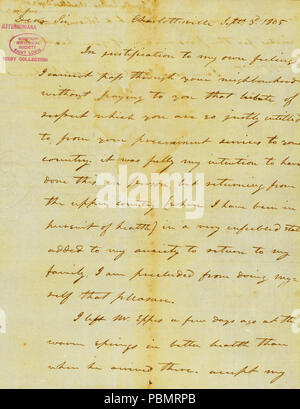 Dear Sir Charlottesville Sept. 3d. 1805
JEFFERSONIANA
MISSOURI
HISTORICAL
SOCIETY
SAINT LOUIS
BIXBY COLLECTION
In justification to my own feelings
I cannot pass through your neighbourhood
without paying to you that tribute of
respect which you are so justly entitled
to, from your preeminent services to your
country. it was fully my intention to have
done this in person, but returning from
the upper country (where I have been in
pursuit of health) in a very enfeebled state
added to my anxiety to return to my
family, I am precluded from doing my-
self that pleasure.
I left Mr. Eppes a few days ago at the
warm springs in better health than
when he arrived there. accept my
alamy
Image ID: PBMRPB
www.alamy.com